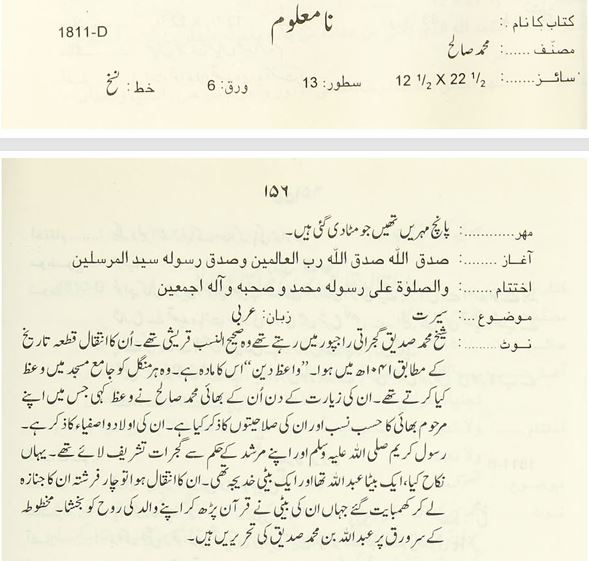 کتاب کا نام .: نامعلوم 1811-D
مصنّف ......: محمد صالح
سائـــز.......: 12 1/2 X 22 1/2 سطور: 13 ورق: 6 خط: نسخ
۱۵۶
مہر............: پانچ مہریں تھیں جو مٹا دی گئی ہیں۔
آغـاز ........: صدق اللّٰه صدق اللّٰه رب العالمین وصدق رسوله سید المرسلین
اختتام ......: والصلوٰة علی رسوله محمد و صحبه و آله اجمعین
موضـوع ...: سیرت زبان: عربی
نـوٹ........: شیخ محمد صدیق گجراتی راجپور میں رہتے تھے وہ صحیح النسب قریشی تھے۔ اُن کا انتقال قطعہ تاریخ
کے مطابق ۱۰۴۱ھ میں ہوا۔ ”واعظ دین“ اس کا مادہ ہے۔ وہ ہر منگل کو جامع مسجد میں وعظ
کیا کرتے تھے۔ ان کی زیارت کے دن اُن کے بھائی محمد صالح نے وعظ کہی جس میں اپنے
مرحوم بھائی کا حسب نسب اور ان کی صلاحیتوں کا ذکر کیا ہے۔ ان کی اولاد و اصفیاء کا ذکر ہے۔
رسول کریم صلی اللہ علیہ وسلم اور اپنے مرشد کے حکم سے گجرات تشریف لائے تھے۔ یہاں
نکاح کیا، ایک بیٹا عبد اللہ تھا اور ایک بیٹی خدیجہ تھی۔ ان کا انتقال ہوا تو چار فرشتہ ان کا جنازہ
لے کر کھمبایت گئے جہاں ان کی بیٹی نے قرآن پڑھ کر اپنے والد کی روح کو بخشا۔ مخطوطہ
کے سرورق پر عبد اللہ بن محمد صدیق کی تحریریں ہیں۔